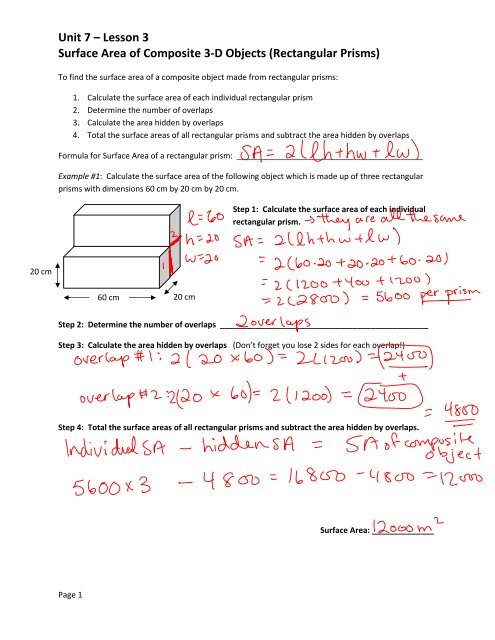 Unit 7 – Lesson 3
Surface Area of Composite 3-D Objects (Rectangular Prisms)
To find the surface area of a composite object made from rectangular prisms:
1. Calculate the surface area of each individual rectangular prism
2. Determine the number of overlaps
3. Calculate the area hidden by overlaps
4. Total the surface areas of all rectangular prisms and subtract the area hidden by overlaps
Formula for Surface Area of a rectangular prism: SA = 2(lh+hw+lw)
Example #1: Calculate the surface area of the following object which is made up of three rectangular
prisms with dimensions 60 cm by 20 cm by 20 cm.
Step 1: Calculate the surface area of each individual
rectangular prism. → they are all the same
l=60
h=20
w=20
2
1
20 cm
60 cm
20 cm
SA = 2(lh+hw+lw)
= 2(60·20+20·20+60·20)
= 2(1200+400+1200)
= 2(2800) = 5600 per prism
Step 2: Determine the number of overlaps 2 overlaps
Step 3: Calculate the area hidden by overlaps (Don't forget you lose 2 sides for each overlap!)
overlap #1: 2(20 x 60) = 2(1200) = 2400
+
overlap #2: 2(20 x 60) = 2(1200) = 2400
= 4800
Step 4: Total the surface areas of all rectangular prisms and subtract the area hidden by overlaps.
Individual SA - hidden SA = SA of composite
object
5600 x 3 - 4800 = 16800 - 4800 = 12000
Surface Area: 12000 m²
Page 1